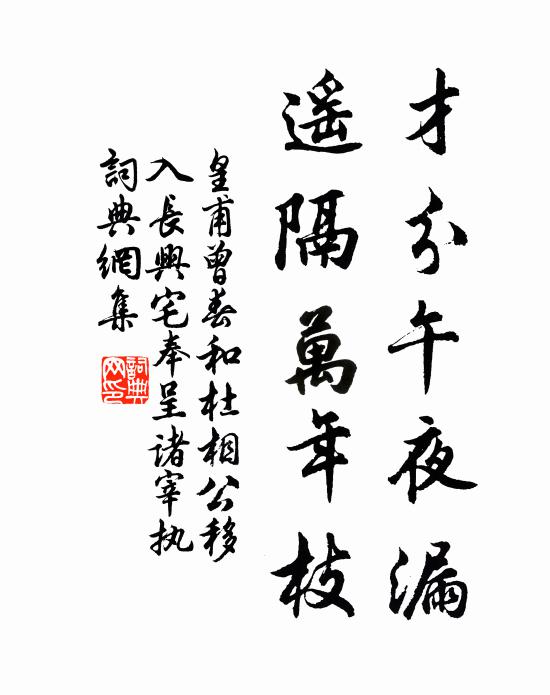 才分午夜漏
遥隔萬年枝
皇甫曾奉和杜相公移
入長興宅奉呈诸宰执
詞典網集
詞典网印